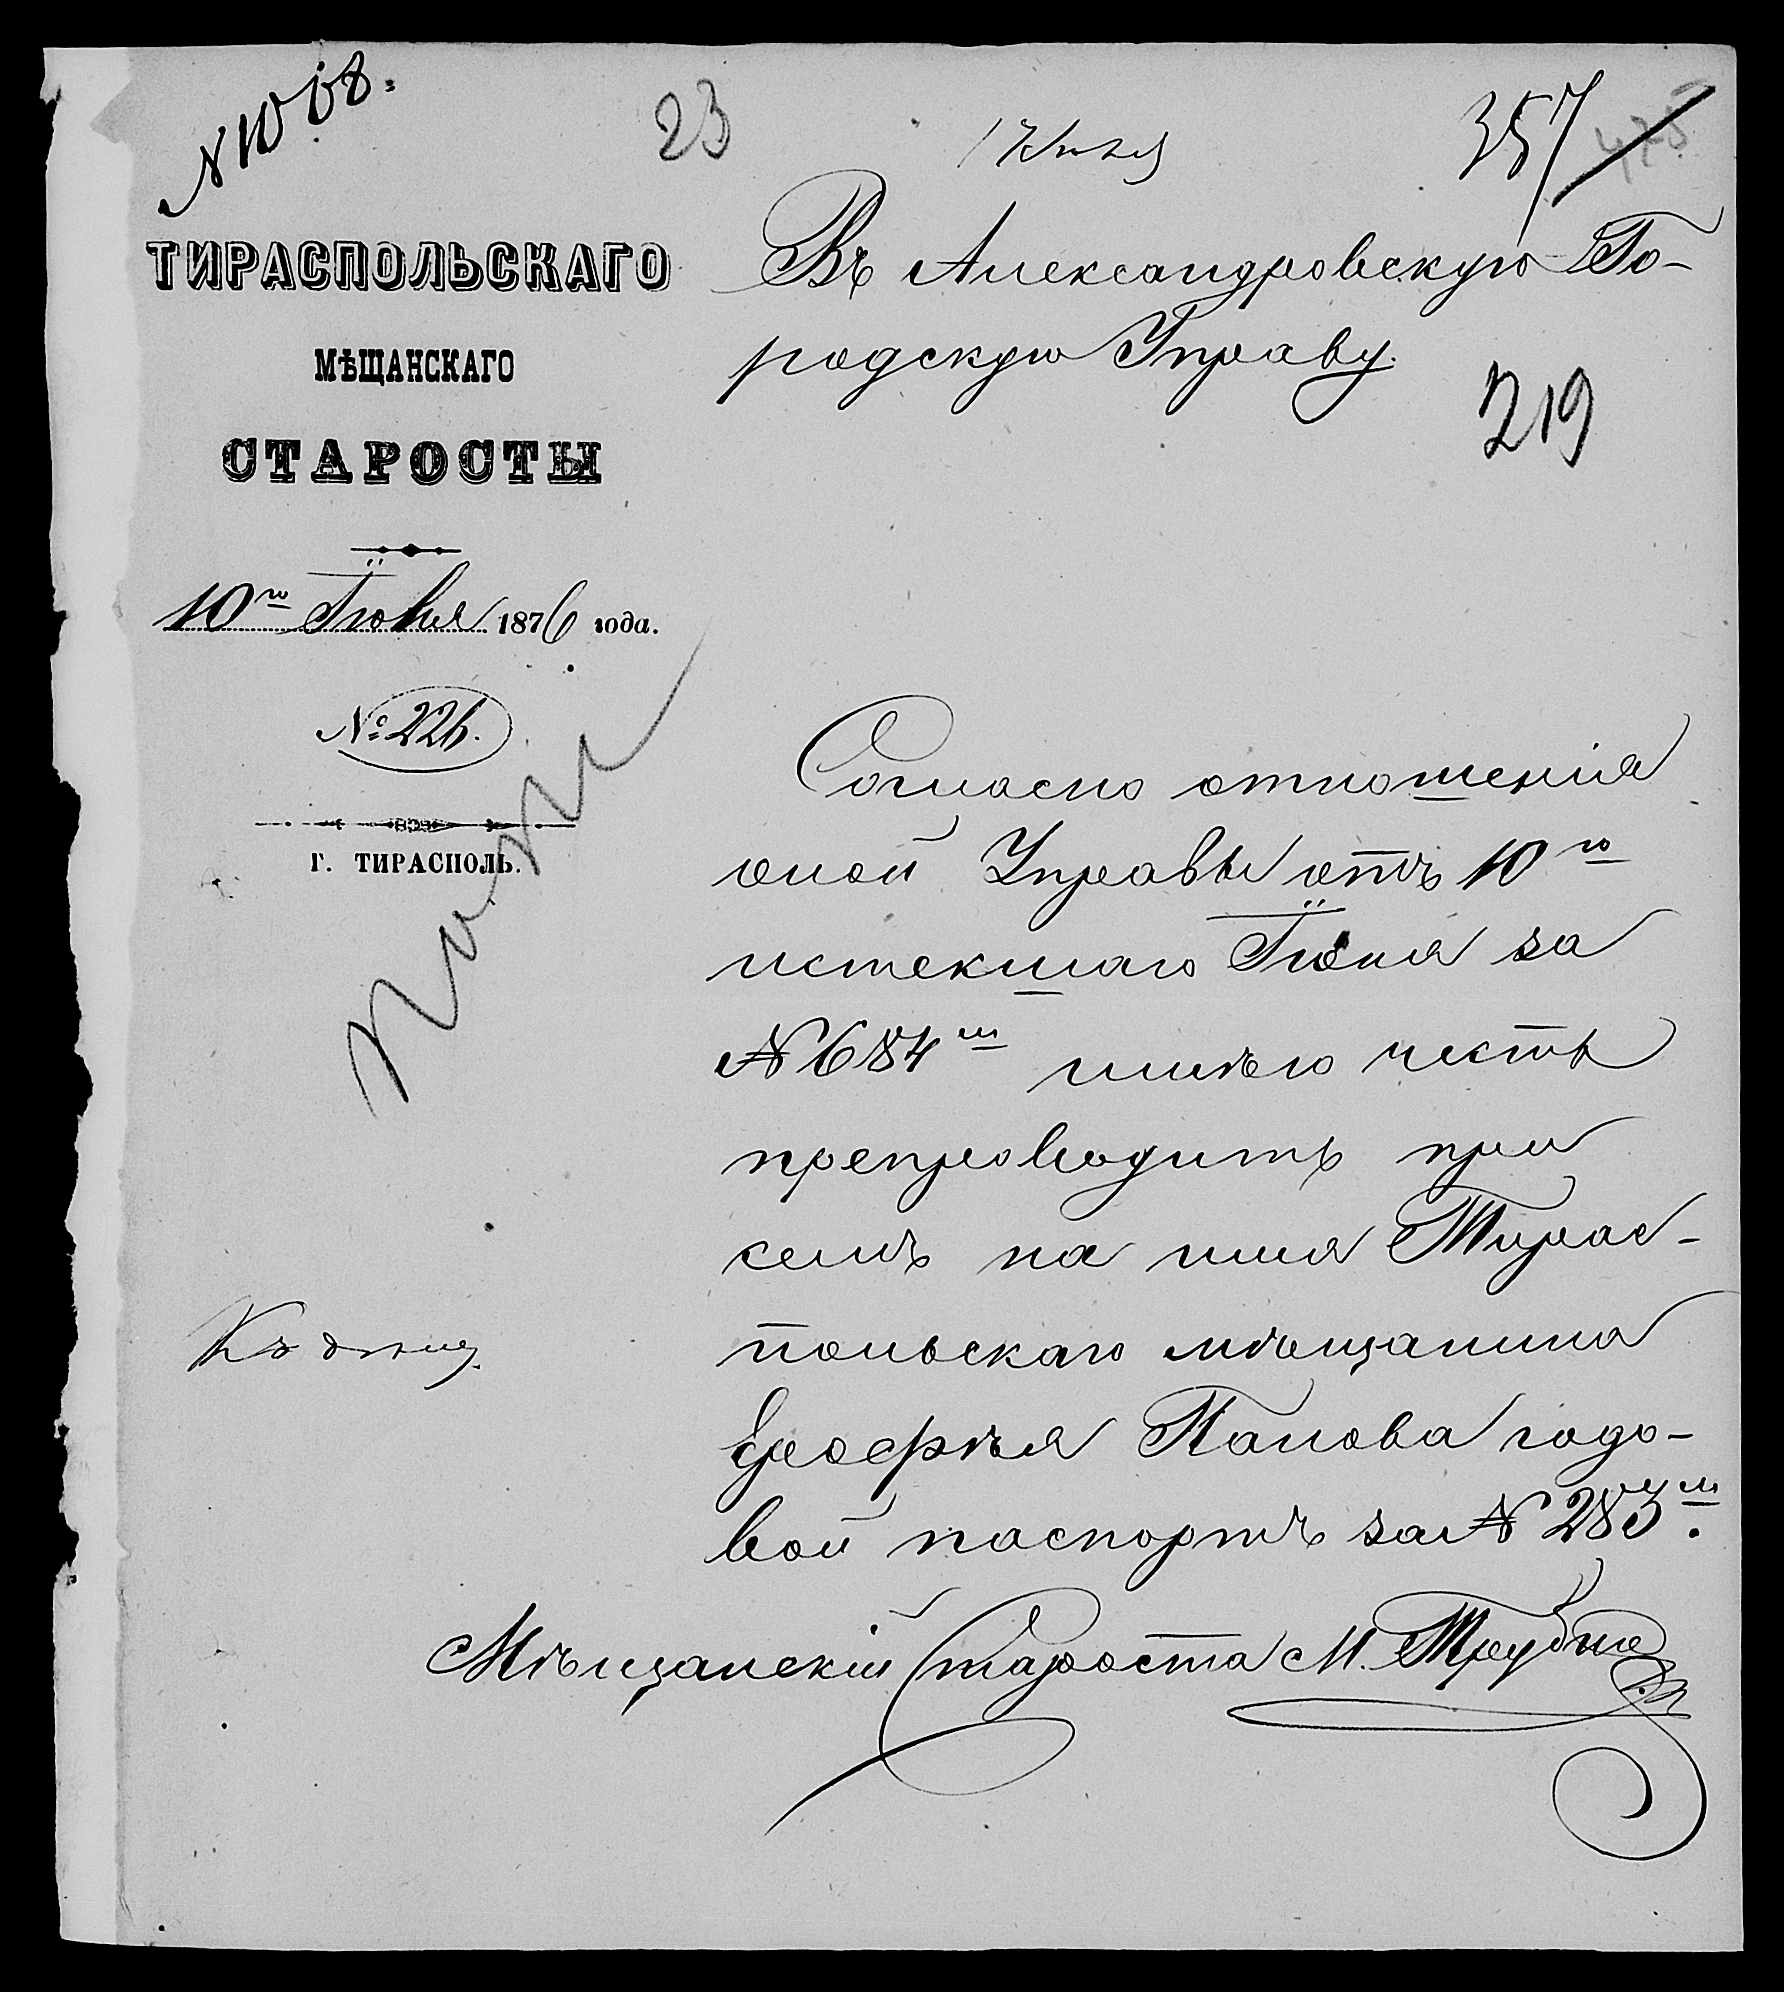 № 1008.
23
17 Іюня
357
475
ТИРАСПОЛЬСКАГО
МѢЩАНСКАГО
СТАРОСТЫ
10го Іюня 1876 года.
№ 226.
Г. ТИРАСПОЛЬ.
Въ Александровскую Го-
родскую Управу.
219
Согласно отношенія
оной Управы отъ 10го
истекшаго Іюня за
№ 684м имѣю честь
препроводить при
семъ на имя Тирас-
польскаго мѣщанина
Ерофѣя Попова годо-
вой паспортъ за № 283м.
Къ дѣлу
Мѣщанскій Староста М.